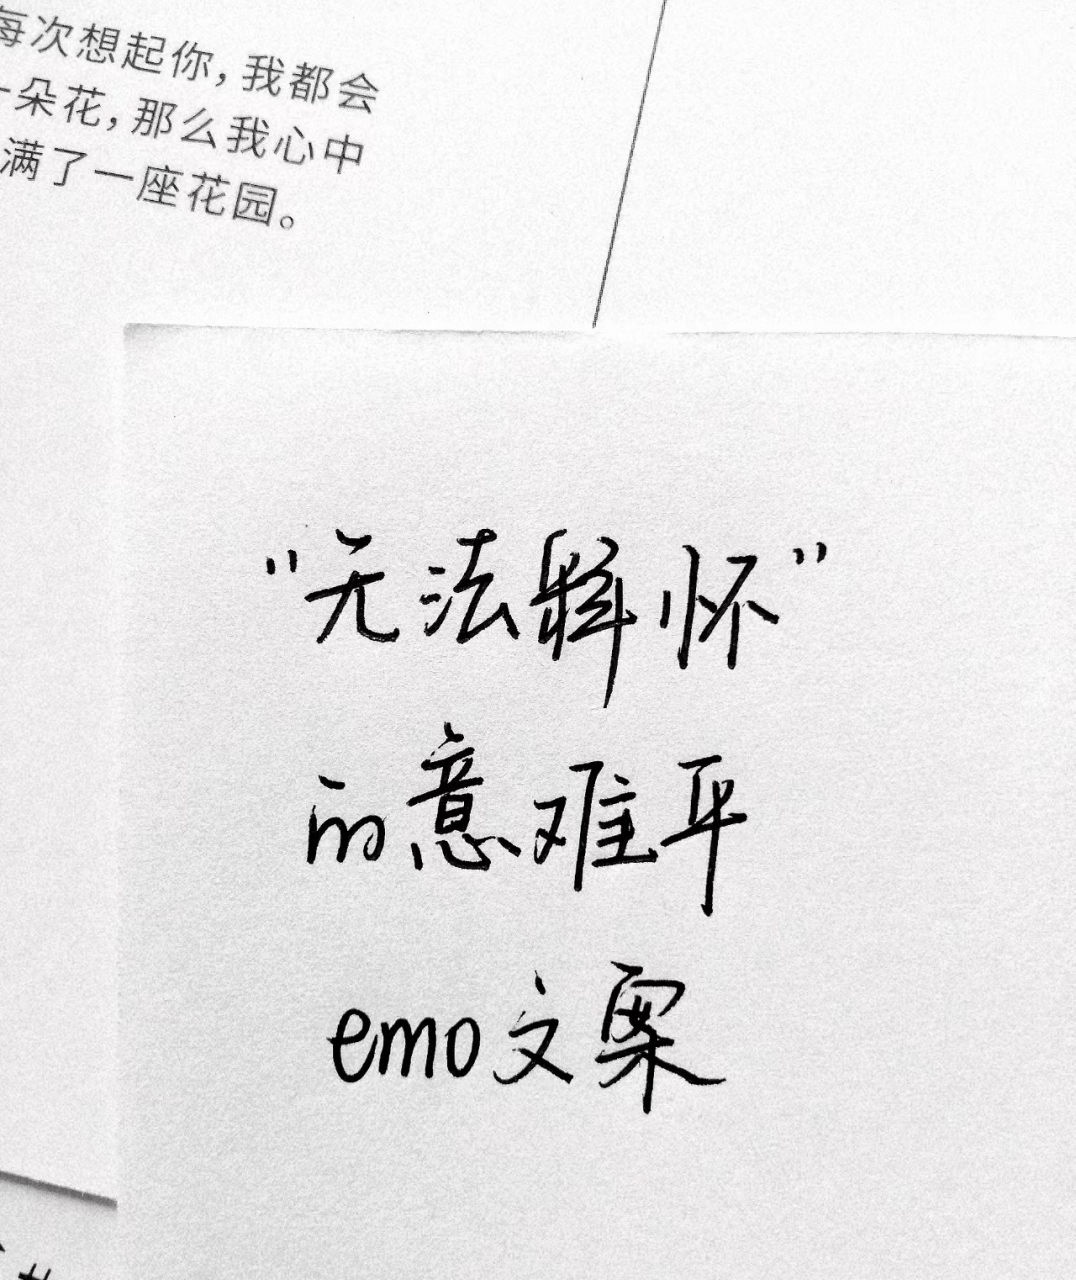 每次想起你，我都会
一朵花，那么我心中
满了一座花园。
“无法释怀”
的意难平
emo文案